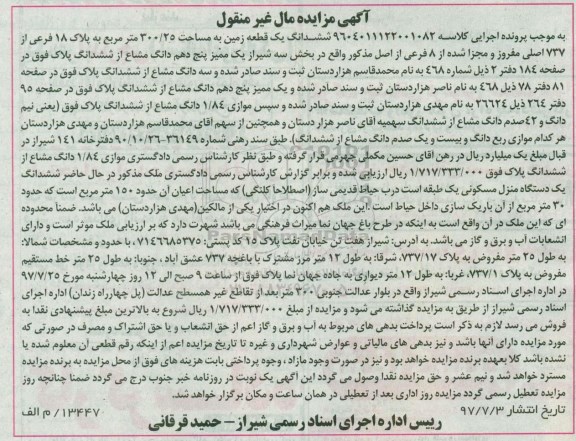 آگهی مزایده مال غیر منقول
به موجب پرونده اجرایی کلاسه ۹۶۰۴۰۱۱۱۲۲۰۰۱۰۸۲ ششدانگ یک قطعه زمین به مساحت ۳۰۰/۲۵ متر مربع به پلاک ۱۸ فرعی از
۷۳۷ اصلی مفروز و مجزا شده از ۸ فرعی از اصل مذکور واقع در بخش سه شیراز یک ممیز پنج دهم دانگ مشاع از ششدانگ پلاک فوق در
صفحه ۱۸۴ دفتر ۲ ذیل شماره ۴۶۸ به نام محمدقاسم هزاردستان ثبت و سند صادر شده و سه دانگ مشاع از ششدانگ پلاک فوق در صفحه
۸۱ دفتر ۷۸ ذیل ۴۶۸ به نام ناصر هزاردستان ثبت و سند صادر شده و یک ممیز پنج دهم دانگ مشاع از ششدانگ پلاک فوق در صفحه ۹۵
دفتر ۲۶۴ ذیل ۲۶۶۲۴ به نام مهدی هزاردستان ثبت و سند صادر شده و سپس موازی ۱/۸۴ دانگ مشاع از ششدانگ پلاک فوق (یعنی نیم
دانگ و ۴۲صدم دانگ مشاع از ششدانگ سهمیه آقای ناصر هزار دستان و همچنین از سهم آقای محمدقاسم هزاردستان و مهدی هزاردستان
هر کدام موازی ربع دانگ و بیست و یک صدم دانگ مشاع از ششدانگ) طبق سند رهنی شماره ۳۶۱۴۹-۹۰/۱۰/۲۶ دفترخانه ۱۴۱ شیراز در
قبال مبلغ یک میلیارد ریال در رهن آقای حسین مکملی جهرمی قرار گرفته و طبق نظر کارشناس رسمی دادگستری موازی ۱/۸۴ دانگ مشاع از
ششدانگ پلاک فوق ۱/۷۱۷/۳۳۳/۰۰۰ ریال ارزیابی شده و برابر گزارش کارشناس رسمی دادگستری ملک مذکور در حال حاضر ششدانگ
یک دستگاه منزل مسکونی یک طبقه است درب حیاط قدیمی ساز (اصطلاحا کلنگی) که مساحت اعیان آن حدود ۱۵۰ متر مربع است که حدود
۳۰ متر مربع از آن باریک سازی داخل حیاط است. این ملک هم اکنون در اختیار یکی از مالکین(مهدی هزاردستان) می باشد. ضمنا محدوده
ای که این ملک در آن واقع است به اینکه در طرح باغ جهان نما میراث فرهنگی می باشد شهرت دارد که بر ارزیابی ملک موثر است و دارای
انشعابات آب و برق و گاز می باشد. به آدرس: شیراز هفت تن خیابان نشاط پلاک ۱۵ کد پستی: ۷۱۴۶۶۸۵۳۷۵، با حدود و مشخصات شمالا:
به طول ۲۵ متر مفروض به پلاک ۷۳۷/۱۷، شرقا: به طول ۱۲ متر مرز مشترک با باغچه ۷۳۷ عشق آباد ، جنوبا: به طول ۲۵ متر خط مستقیم
مفروض به پلاک ۷۳۷/۱، غربا: به طول ۱۲ متر دیواری به جاده جهان نما پلاک فوق از ساعت ۹ صبح الی ۱۲ روز چهارشنبه مورخ ۹۷/۷/۲۵
در اداره اجرای اسناد رسمی شیراز واقع در بلوار عدالت جنوبی ۲۰۰ متر بعد از تقاطع غیر همسطح عدالت (پل چهارراه زندان) اداره اجرای
اسناد رسمی شیراز از طریق به مزایده گذاشته می شود و مزایده از مبلغ ۱/۷۱۷/۳۳۳/۰۰۰ ریال شروع به بالاترین مبلغ پیشنهادی نقدا به
فروش می رسد لازم به ذکر است پرداخت بدهی های مربوط به آب و برق و گاز اعم از حق انشعاب و یا حق اشتراک و مصرف در صورتی که
مورد مزایده دارای آنها باشد و نیز بدهی های مالیاتی و عوارض شهرداری و غیره تا تاریخ مزایده اعم از اینکه رقم قطعی آن معلوم شده یا
نشده باشد کلا بعهده برنده مزایده خواهد بود و نیز در صورت وجود مازاد ، وجوه پرداختی بابت هزینه های فوق از محل مزایده به برنده مزایده
مسترد خواهد شد و نیم عشر و حق مزایده نقدا وصول می گردد این آگهی یک نوبت در روزنامه خبر جنوب درج می گردد ضمنا چنانچه روز
مزایده تعطیل رسمی گردد مزایده روز اداری بعد از تعطیلی در همان ساعت و مکان برگزار خواهد شد.
تاریخ انتشار ۹۷/۷/۳
۱۳۴۴۷/م الف
رییس اداره اجرای اسناد رسمی شیراز– حمید قرقانی